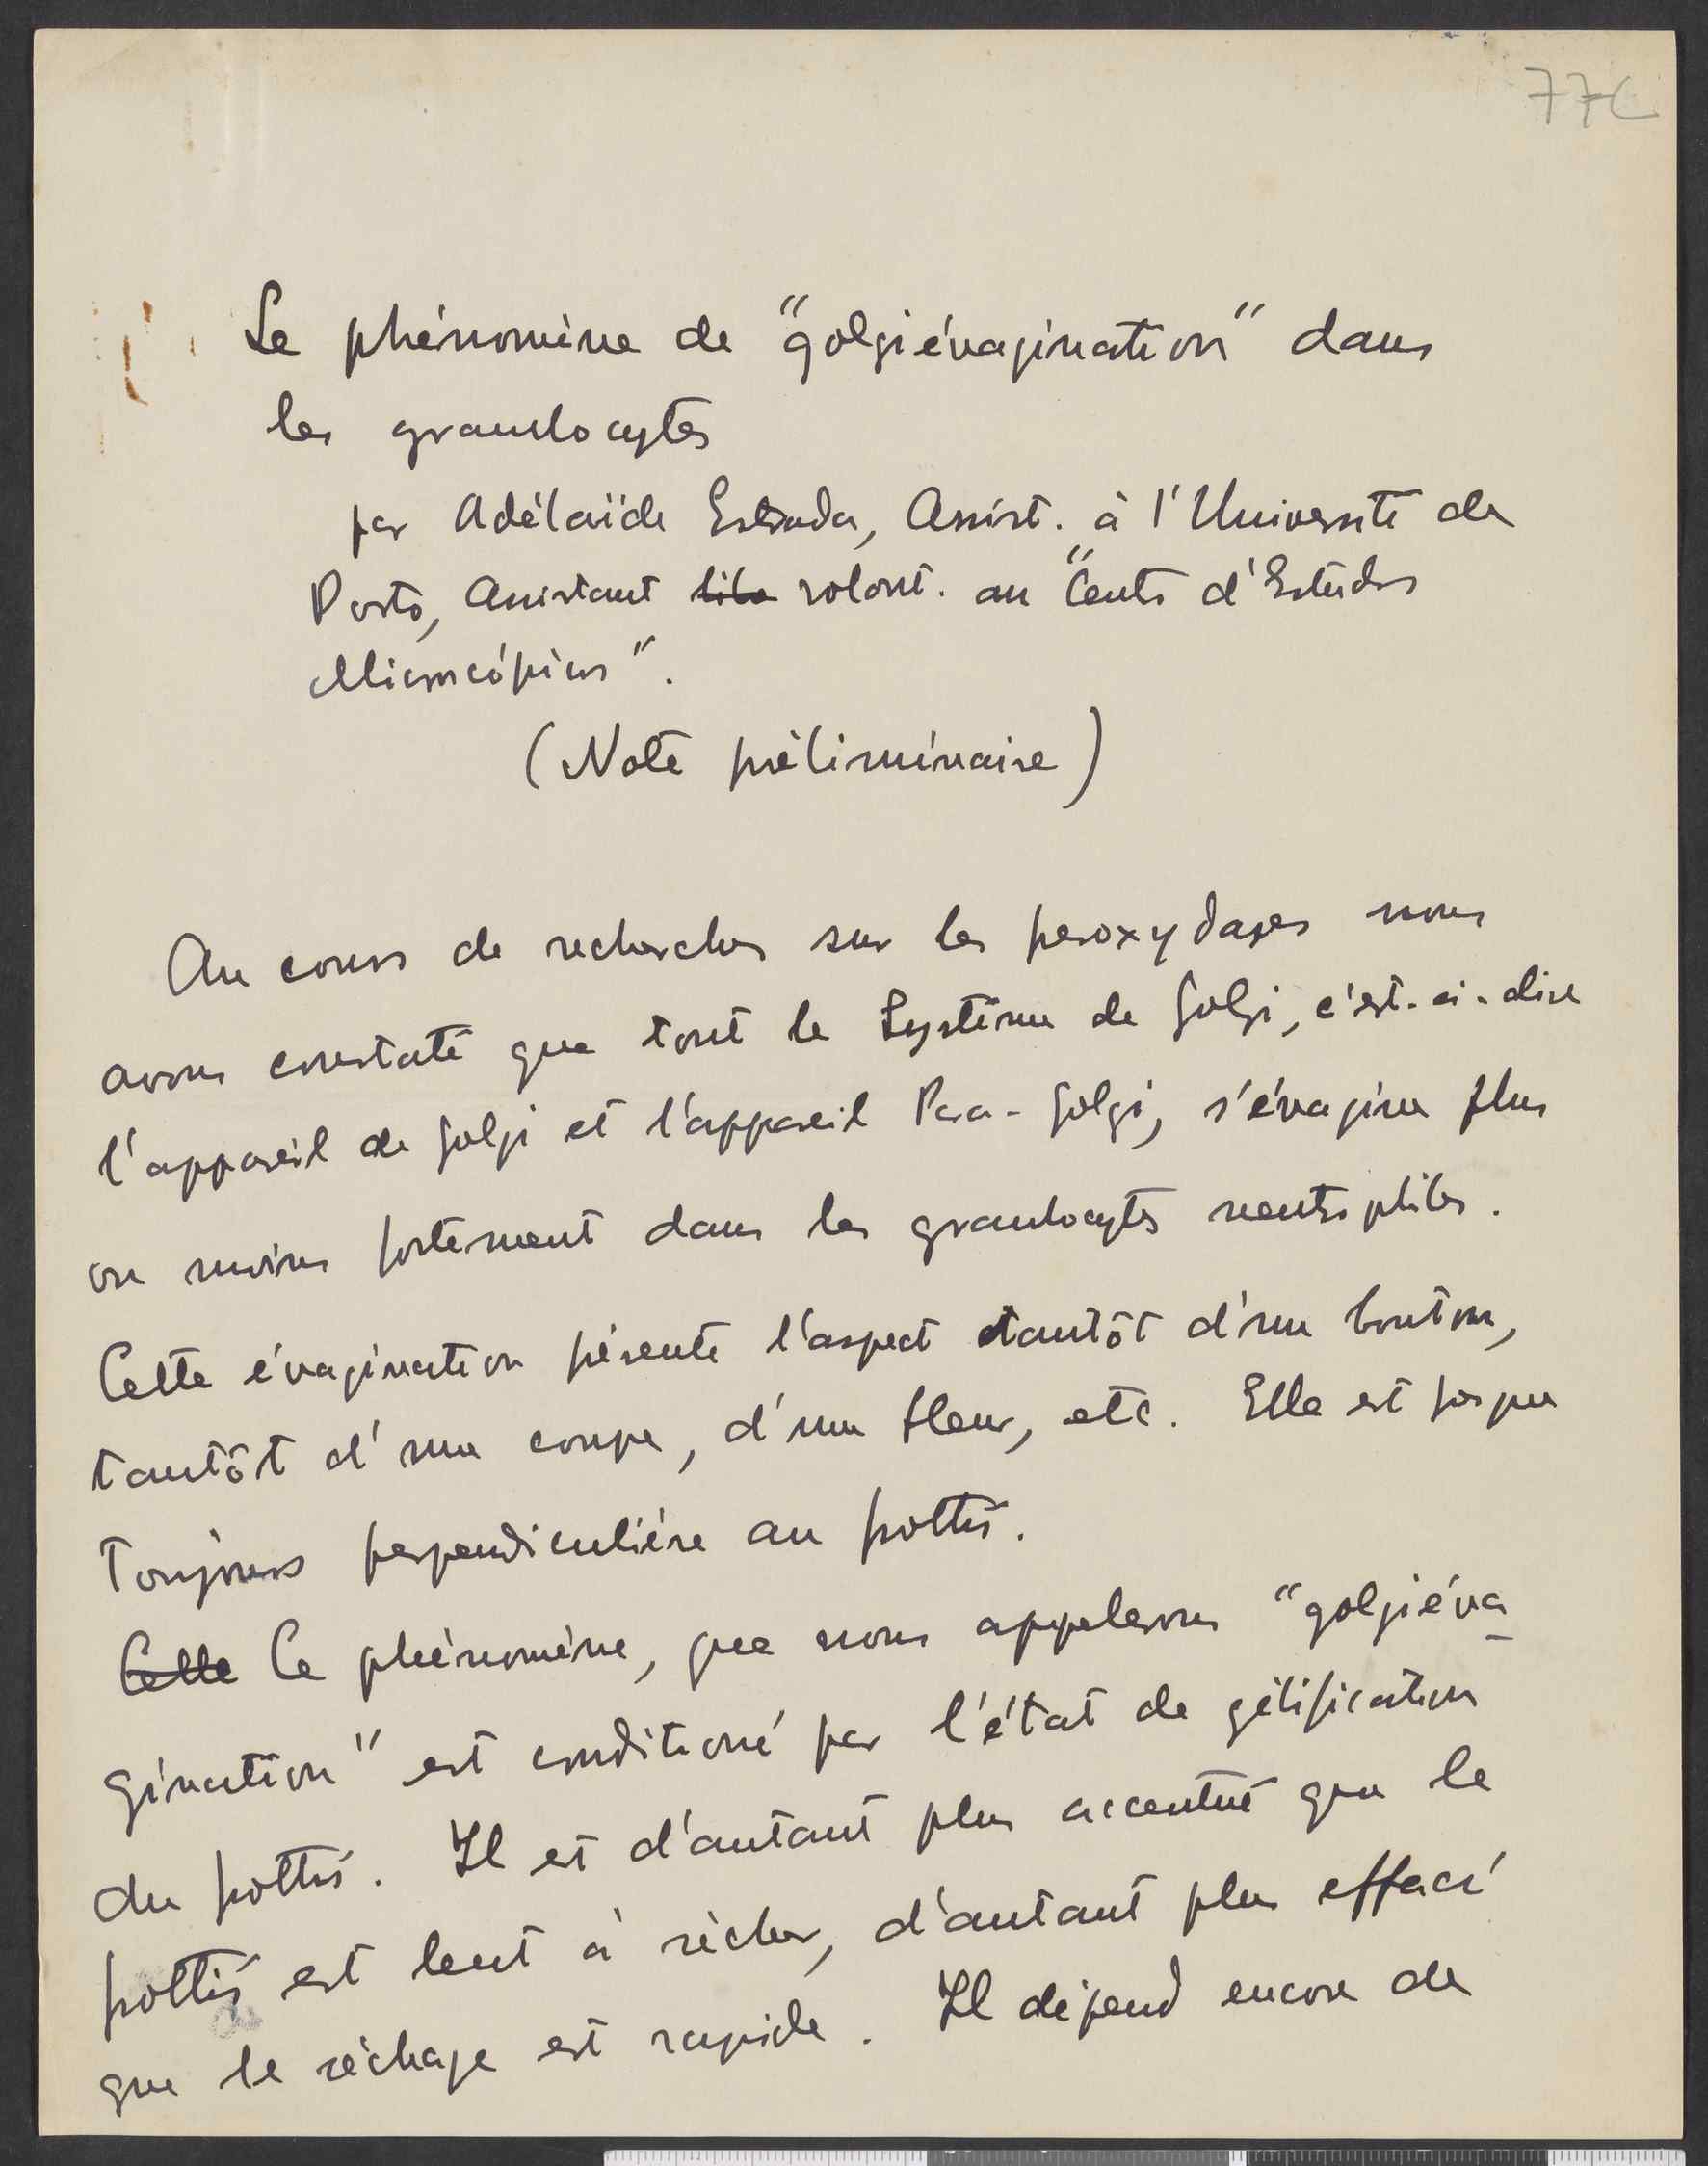 77C
Le phénomène de "golgiévagination" dans
les granulocytes
par Adélaïde Estrada, Assist. à l'Université de
Porto, Assistant volont. au "Centr. d'Estudos
Microscópicos".
(Note préliminaire)
Au cours de recherches sur les peroxydases nous
avons constaté que tout le Système de Golgi, c'est-à-dire
l'appareil de Golgi et l'appareil Para-Golgi, s'évagine plus
ou moins fortement dans les granulocytes neutrophiles.
Cette évagination présente l'aspect tantôt d'un bouton,
tantôt d'une coupe, d'une fleur, etc. Elle est presque
toujours perpendiculière au frottis.
Cette Ce phénomène, que nous appelerons "golgiéva
gination" est conditioné par l'état de gélification
du frottis. Il et d'autant plus accentué que le
frottis est lent à sécher, d'autant plus effacé
que le séchage est rapide. Il dépend encore de